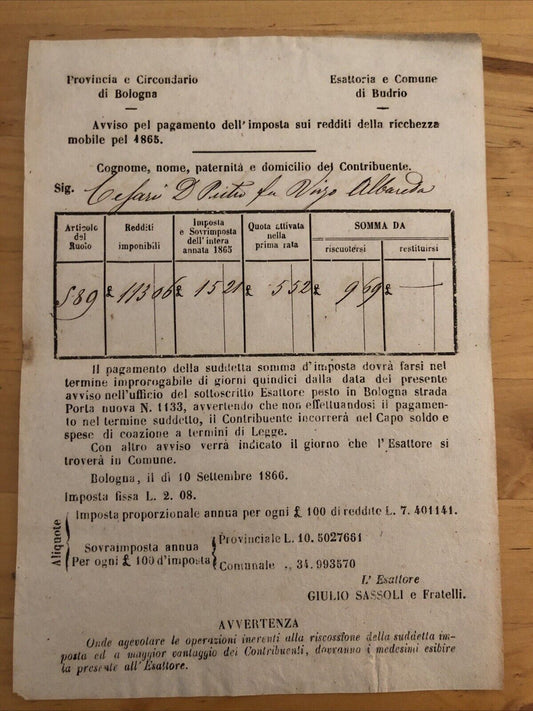 Provincia e Circondario
di Bologna
Esattoria e Comune
di Budrio
Avviso pel pagamento dell'imposta sui redditi della ricchezza
mobile pel 1865.
Cognome, nome, paternità e domicilio del Contribuente.
Sig. Cesari D Pietro fu Vinzo Albareda
Articolo del Ruolo
Redditi imponibili
Imposta e Sovrimposta dell'intera annata 1865
Quota attivata nella prima rata
SOMMA DA
riscuotersi
restituirsi
589 £ 113 06 £ 15 21 £ 5 52 £ 9 69 £ —
Il pagamento della suddetta somma d'imposta dovrà farsi nel
termine improrogabile di giorni quindici dalla data del presente
avviso nell'ufficio del sottoscritto Esattore posto in Bologna strada
Porta nuova N. 1133, avvertendo che non effettuandosi il pagamen-
to nel termine suddetto, il Contribuente incorrerà nel Capo soldo e
spese di coazione a termini di Legge.
Con altro avviso verrà indicato il giorno che l'Esattore si
troverà in Comune.
Bologna, il dì 10 Settembre 1866.
Imposta fissa L. 2. 08.
Aliquote
Imposta proporzionale annua per ogni £ 100 di reddito L. 7. 401141.
Sovraimposta annua
Per ogni £ 100 d'imposta
Provinciale L. 10. 5027661
Comunale „ 34. 993570
L' Esattore
GIULIO SASSOLI e Fratelli.
AVVERTENZA
Onde agevolare le operazioni inerenti alla riscossione della suddetta im-
posta ed a maggior vantaggio dei Contribuenti, dovranno i medesimi esibire
la presente all'Esattore.